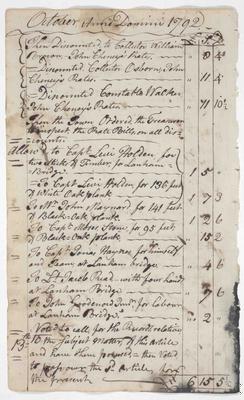 October Anno Domini 1792
Then Discounted to Collector William
John Cheneys Rates 8 4
Discounted Collector Osborn John
Cheneys Rates 11 4
Discounted Constable Walker
John Cheneys Rates 71 10½
Then the Town Ordered the Treasurer
to the Rate Bills, on all dis
counts.
Allowed to Capt Levi Holden for
two Sticks of Timber for Lanham
Bridge 5
To Capt Levi Holden for 136 feet
of White Oak plank 1 7 3
To Wm John Maynard for 141 feet
of Black Oak plank 2 6
To Capt Moses Stone for 95 feet
of Black Oak plank 15 2
To Capt Jonas Haynes for himself
& Team at Lanham bridge 4 6
To Lt Jacob Read with four hands
at Lanham Bridge 9 6
To John for Labour
at Lanham Bridge 2
Voted to call for the Records relative
to the Subject matter of this Article
and have them perused = then Voted
to the Article for
the present
6 15 5½